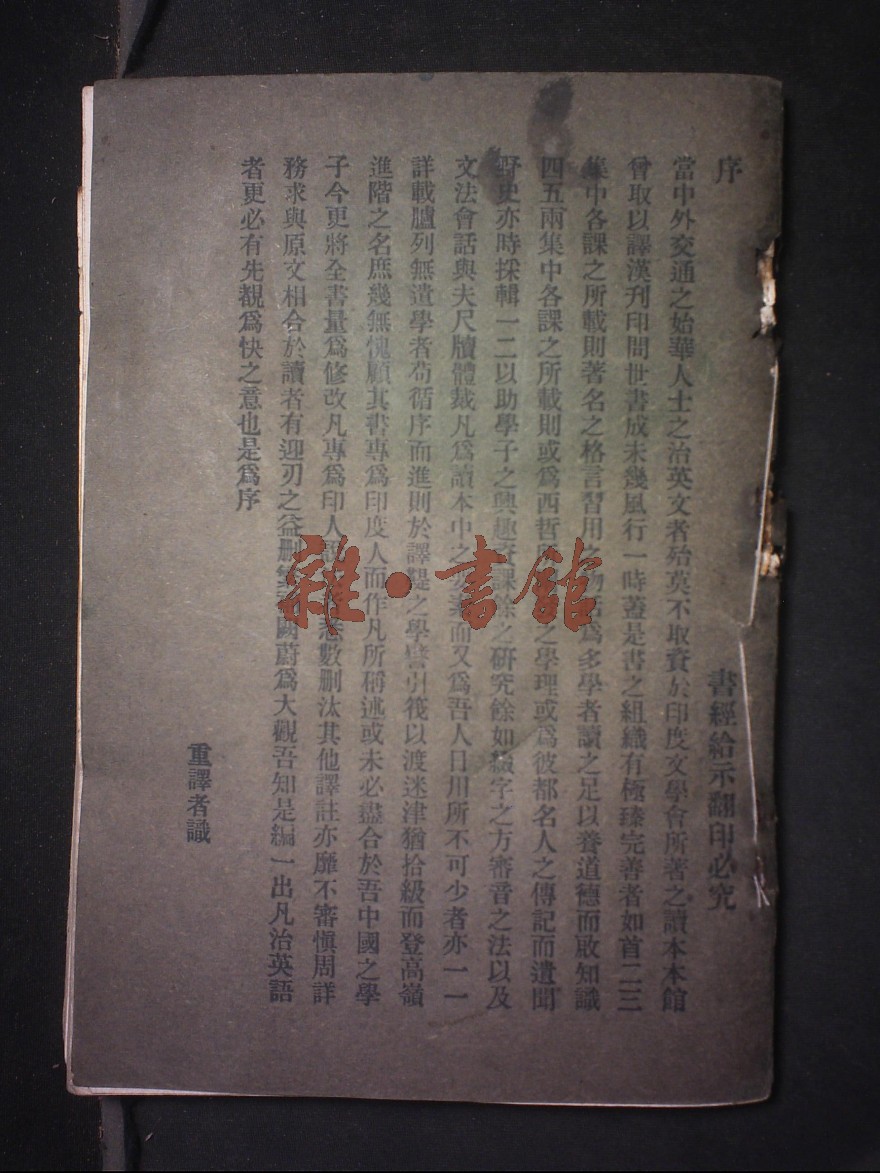 序
書經給示翻印必究
當中外交通之始華人士之治英文者殆莫不取資於印度文學會所著之讀本本館
曾取以譯漢刊印問世書成未幾風行一時蓋是書之組織有極臻完善者如首二三
集中各課之所載則著名之格言習用之物爲多學者讀之足以養道德而啟知識
四五兩集中各課之所載則或爲西哲之學理或爲彼都名人之傳記而遺聞
野史亦時採輯一二以助學子之興趣資課餘之研究餘如綴字之方審音之法以及
文法會話與夫尺牘體裁凡爲讀本中之而又爲吾人日用所不可少者亦一一
詳載臚列無遺學者苟循序而進則於譯鞮之學譬引筏以渡迷津猶拾級而登高嶺
進階之名庶幾無愧顧其書專爲印度人而作凡所稱述或未必盡合於吾中國之學
子今更將全書量爲修改凡專爲印人悉數刪汰其他譯註亦靡不審愼周詳
務求與原文相合於讀者有迎刃之益刪蔚爲大觀吾知是編一出凡治英語
者更必有先覩爲快之意也是爲序
重譯者識
雜·書館